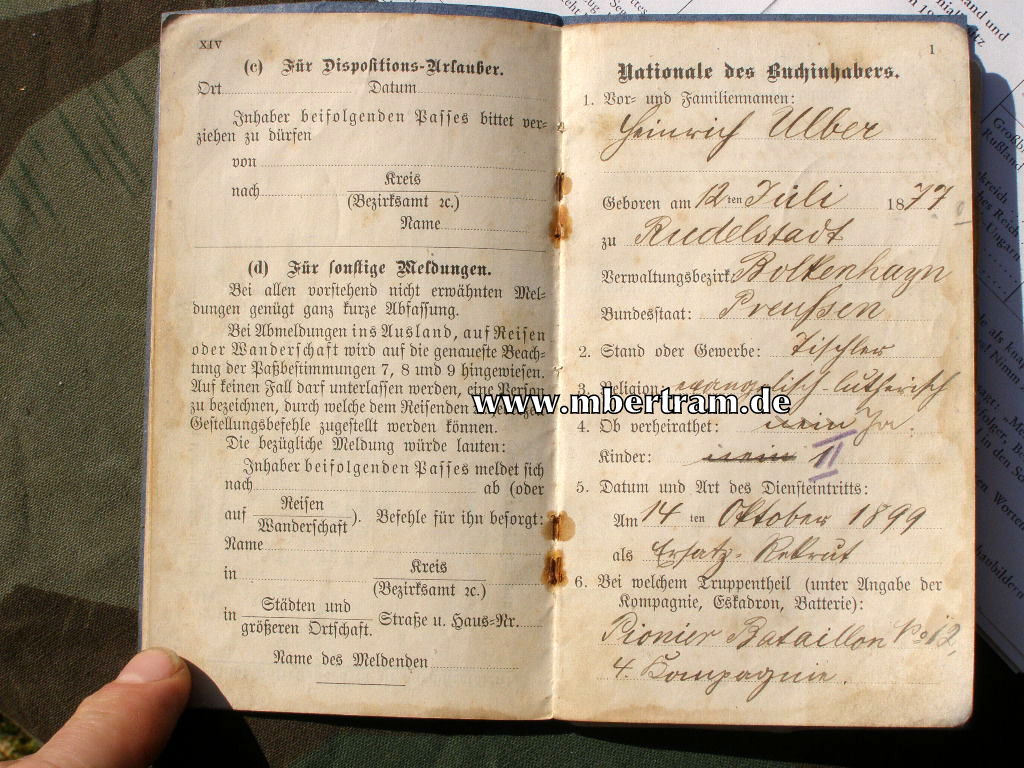 XIV
(c) Für Dispositions-Urlauber.
Ort Datum
Inhaber beifolgenden Passes bittet ver-
ziehen zu dürfen
von
nach Kreis
(Bezirksamt ꝛc.)
Name
(d) Für sonstige Meldungen.
Bei allen vorstehend nicht erwähnten Mel-
dungen genügt ganz kurze Abfassung.
Bei Abmeldungen ins Ausland, auf Reisen
oder Wanderschaft wird auf die genaueste Beach-
tung der Paßbestimmungen 7, 8 und 9 hingewiesen.
Auf keinen Fall darf unterlassen werden, eine Person
zu bezeichnen, durch welche dem Reisenden
Gestellungsbefehle zugestellt werden können.
Die bezügliche Meldung würde lauten:
Inhaber beifolgenden Passes meldet sich
nach ab (oder
auf Reisen
Wanderschaft). Befehle für ihn besorgt:
Name
in Kreis
(Bezirksamt ꝛc.)
in Städten und
größeren Ortschaft. Straße u. Haus-Nr.
Name des Meldenden
1
Nationale des Buchinhabers.
1. Vor- und Familiennamen:
Heinrich Ulber
Geboren am 12ten Juli 1877
zu Rudelstadt
Verwaltungsbezirk: Bolkenhayn
Bundesstaat: Preußen
2. Stand oder Gewerbe: Tischler
3. Religion: evangelisch-lutherisch
www.mbertram.de
4. Ob verheirathet: nein Ja.
Kinder: nein 1 II
5. Datum und Art des Diensteintritts:
Am 14ten Oktober 1899
als Ersatz-Rekrut
6. Bei welchem Truppentheil (unter Angabe der
Kompagnie, Eskadron, Batterie):
Pionier Bataillon No 12,
4. Kompagnie.